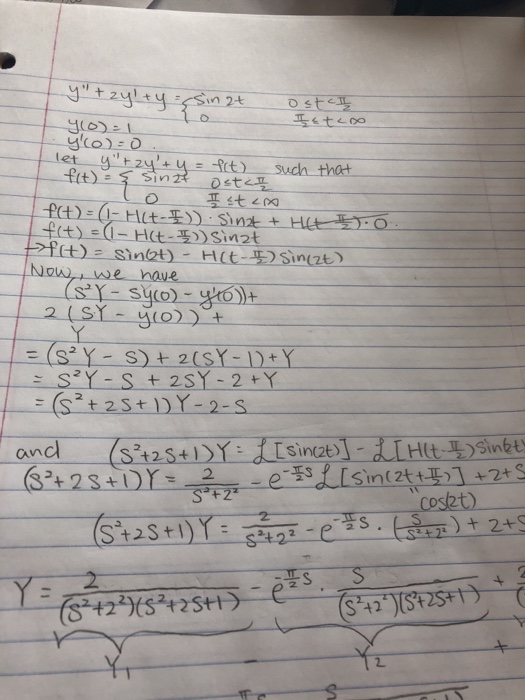 y'' + 2y' + y = { sin 2t 0 ≤ t < π/2
{ 0 π/2 ≤ t < ∞
y(0) = 1
y'(0) = 0
let y'' + 2y' + y = f(t) such that
f(t) = { sin 2t 0 ≤ t < π/2
{ 0 π/2 ≤ t < ∞
f(t) = (1 - H(t - π/2)) · sin 2t + H(t - π/2) · 0.
f(t) = (1 - H(t - π/2)) sin 2t
→ f(t) = sin(2t) - H(t - π/2) sin(2t)
Now, we have
(s²Y - sy(0) - y'(0)) +
2(sY - y(0)) +
Y
= (s²Y - s) + 2(sY - 1) + Y
= s²Y - s + 2sY - 2 + Y
= (s² + 2s + 1)Y - 2 - s
and (s² + 2s + 1)Y = ℒ[sin(2t)] - ℒ[H(t - π/2) sin(2t)
(s² + 2s + 1)Y = 2/(s² + 2²) - e^(-π/2 s) ℒ[sin(2t + π/2)] + 2 + s
" cos(2t)
(s² + 2s + 1)Y = 2/(s² + 2²) - e^(-π/2 s) · (s/(s² + 2²)) + 2 + s
Y = 2/((s² + 2²)(s² + 2s + 1)) - e^(-π/2 s) · s/((s² + 2²)(s² + 2s + 1)) +
Y₁ - Y₂ +